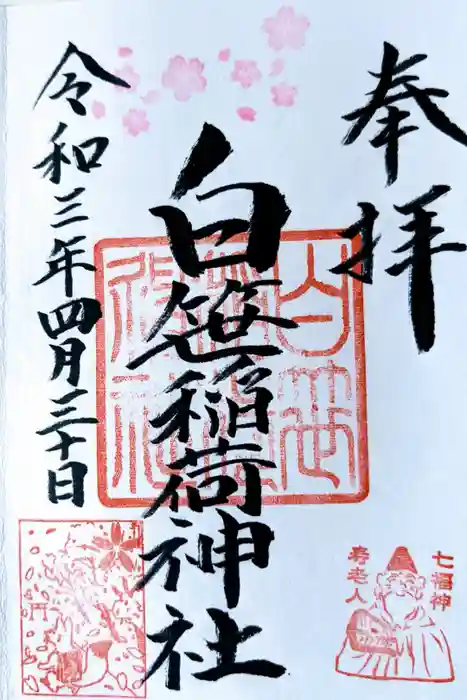 奉拝
白笹稲荷神社
令和三年四月三十日
七福神
寿老人